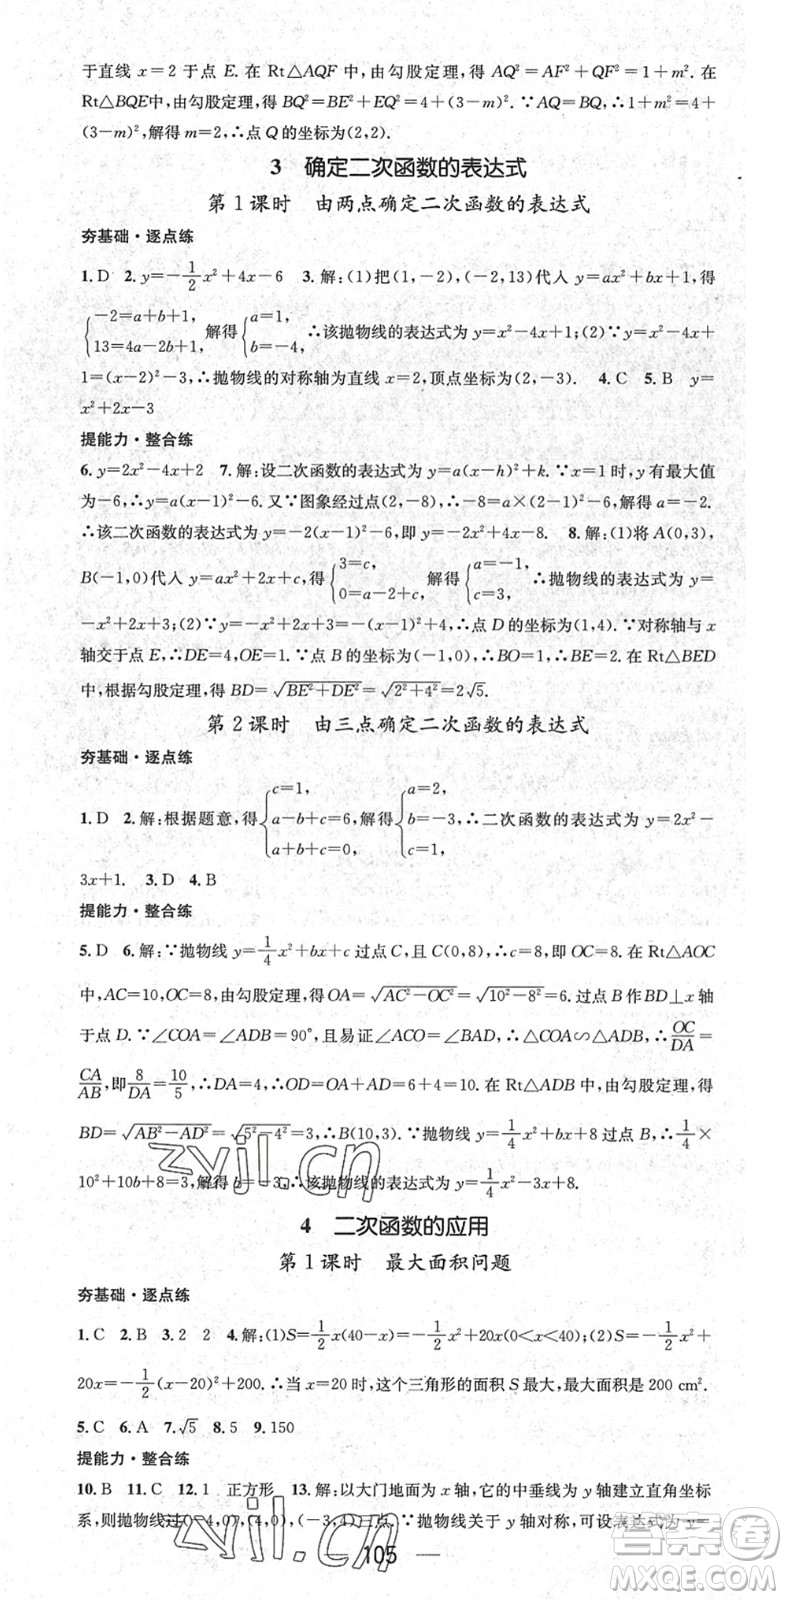 于直线 x=2 于点 E. 在 Rt△AQF 中,由勾股定理,得 AQ²=AF²+QF²=1+m². 在
Rt△BQE中,由勾股定理,得 BQ²=BE²+EQ²=4+(3-m)². ∵AQ=BQ,∴1+m²=4+
(3-m)²,解得 m=2,∴点 Q 的坐标为(2,2).
3 确定二次函数的表达式
第 1 课时 由两点确定二次函数的表达式
夯基础·逐点练
1. D 2. y=-1/2x²+4x-6 3. 解:(1)把(1,-2),(-2,13)代入 y=ax²+bx+1,得
{-2=a+b+1, 13=4a-2b+1, 解得{a=1, b=-4, ∴该抛物线的表达式为 y=x²-4x+1;(2)∵y=x²-4x+
1=(x-2)²-3,∴抛物线的对称轴为直线 x=2,顶点坐标为(2,-3). 4. C 5. B y=
x²+2x-3
提能力·整合练
6. y=2x²-4x+2 7. 解:设二次函数的表达式为 y=a(x-h)²+k. ∵x=1 时,y 有最大值
为-6,∴y=a(x-1)²-6. 又∵图象经过点(2,-8),∴-8=a×(2-1)²-6. 解得 a=-2.
∴该二次函数的表达式为 y=-2(x-1)²-6,即 y=-2x²+4x-8. 8. 解:(1)将 A(0,3),
B(-1,0)代入 y=ax²+2x+c,得{3=c, 0=a-2+c, 解得{a=-1, c=3, ∴该抛物线的表达式为 y=
-x²+2x+3;(2)∵y=-x²+2x+3=-(x-1)²+4,∴点 D 的坐标为(1,4). ∵对称轴与 x
轴交于点 E,∴DE=4,OE=1. ∵点 B 的坐标为(-1,0),∴BO=1,∴BE=2. 在 Rt△BED
中,根据勾股定理,得 BD=√(BE²+DE²)=√(2²+4²)=2√5.
第 2 课时 由三点确定二次函数的表达式
夯基础·逐点练
1. D 2. 解:根据题意,得{c=1, a-b+c=6, a+b+c=0, 解得{a=2, b=-3, c=1, ∴二次函数的表达式为 y=2x²-
3x+1. 3. D 4. B
提能力·整合练
5. D 6. 解:∵抛物线 y=1/4x²+bx+c 过点 C,且 C(0,8),∴c=8,即 OC=8. 在 Rt△AOC
中,AC=10,OC=8,由勾股定理,得 OA=√(AC²-OC²)=√(10²-8²)=6. 过点 B 作 BD⊥x 轴
于点 D. ∵∠COA=∠ADB=90°,且易证∠ACO=∠BAD,∴△COA∽△ADB,∴OC/DA=
CA/AB,即8/DA=10/5,∴DA=4,∴OD=OA+AD=6+4=10. 在 Rt△ADB 中,由勾股定理,得
BD=√(AB²-AD²)=√(5²-4²)=3,∴B(10,3). ∵抛物线 y=1/4x²+bx+8 过点 B,∴1/4×
10²+10b+8=3,解得 b=-3. ∴该抛物线的表达式为 y=1/4x²-3x+8.
4 二次函数的应用
第 1 课时 最大面积问题
夯基础·逐点练
1. C 2. B 3. 2 2 4. 解:(1)S=1/2x(40-x)=-1/2x²+20x(0<x<40);(2)S=-1/2x²+
20x=-1/2(x-20)²+200,∴当 x=20 时,这个三角形的面积 S 最大,最大面积为 200 cm².
5. C 6. A 7. √5 8. 5 9. 150
提能力·整合练
10. B 11. C 12. 1 正方形 13. 解:以大门地面为 x 轴,它的中垂线为 y 轴建立直角坐标
系,则抛物线过(-4,0),(4,0),(-3,4)三点. ∵抛物线关于 y 轴对称,可设表达式为 y=
105
zyjl.cn
答案圈
MXQE.COM